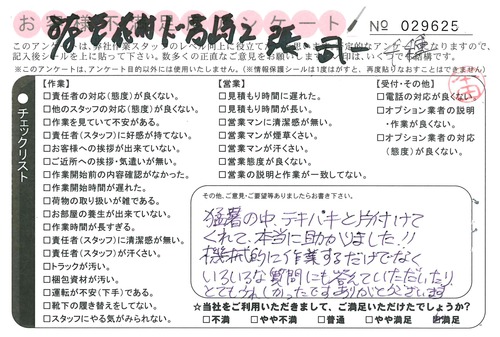 お客様 アンケート
№ 029625
このアンケートは、弊社作業スタッフのレベル向上に役立て
記入後シールを上に貼って下さい。数多くの正直なご意見をお願いします。
※このアンケートは、アンケート目的以外には使用いたしません。(※情報保護シールは1度はがすと、再度貼りなおすことはできません)
チェックリスト
【作業】
□責任者の対応(態度)が良くない。
□他のスタッフの対応(態度)が良くない。
□作業を見ていて不安がある。
□責任者(スタッフ)に好感が持てない。
□お客様への挨拶が出来ていない。
□ご近所への挨拶・気遣いが無い。
□作業開始前の内容確認がなかった。
□作業開始時間が遅れた。
□荷物の取り扱いが雑である。
□お部屋の養生が出来ていない。
□作業時間が長すぎる。
□責任者(スタッフ)に清潔感が無い。
□責任者(スタッフ)が汗くさい。
□トラックが汚い。
□梱包資材が汚い。
□運転が不安(下手)である。
□靴下の履き替えをしてない。
□スタッフにやる気がみられない。
【営業】
□見積もり時間に遅れた。
□見積もり時間が長い。
□営業マンに清潔感が無い。
□営業マンが煙草くさい。
□営業マンが汗くさい。
□営業マンの態度が良くない。
□営業の説明と作業が一致してない。
【受付・その他】
□電話の対応が良くない。
□オプション業者の説明・作業が良くない。
□オプション業者の対応(態度)が良くない。
その他、ご意見・ご要望等ありましたらお書き下さい。
猛暑の中、テキパキと片付けて
くれて、本当に助かりました!!
機械的に作業するだけでなく
いろいろな質問にも答えていただいたり、
とてもよかったです。ありがとうございます
☆当社をご利用いただきまして、ご満足いただけたでしょうか?
□不満 □やや不満 □普通 □やや満足 満足